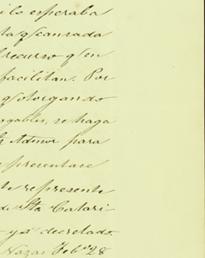 ilo esperaba
ta q̃ cansada
recurso q̃ en
facilitan. Por
q̃ otorgando
se haga
para
presentase
te represente
de Sta Catari
y se decretado
Nazas Feb.º 28